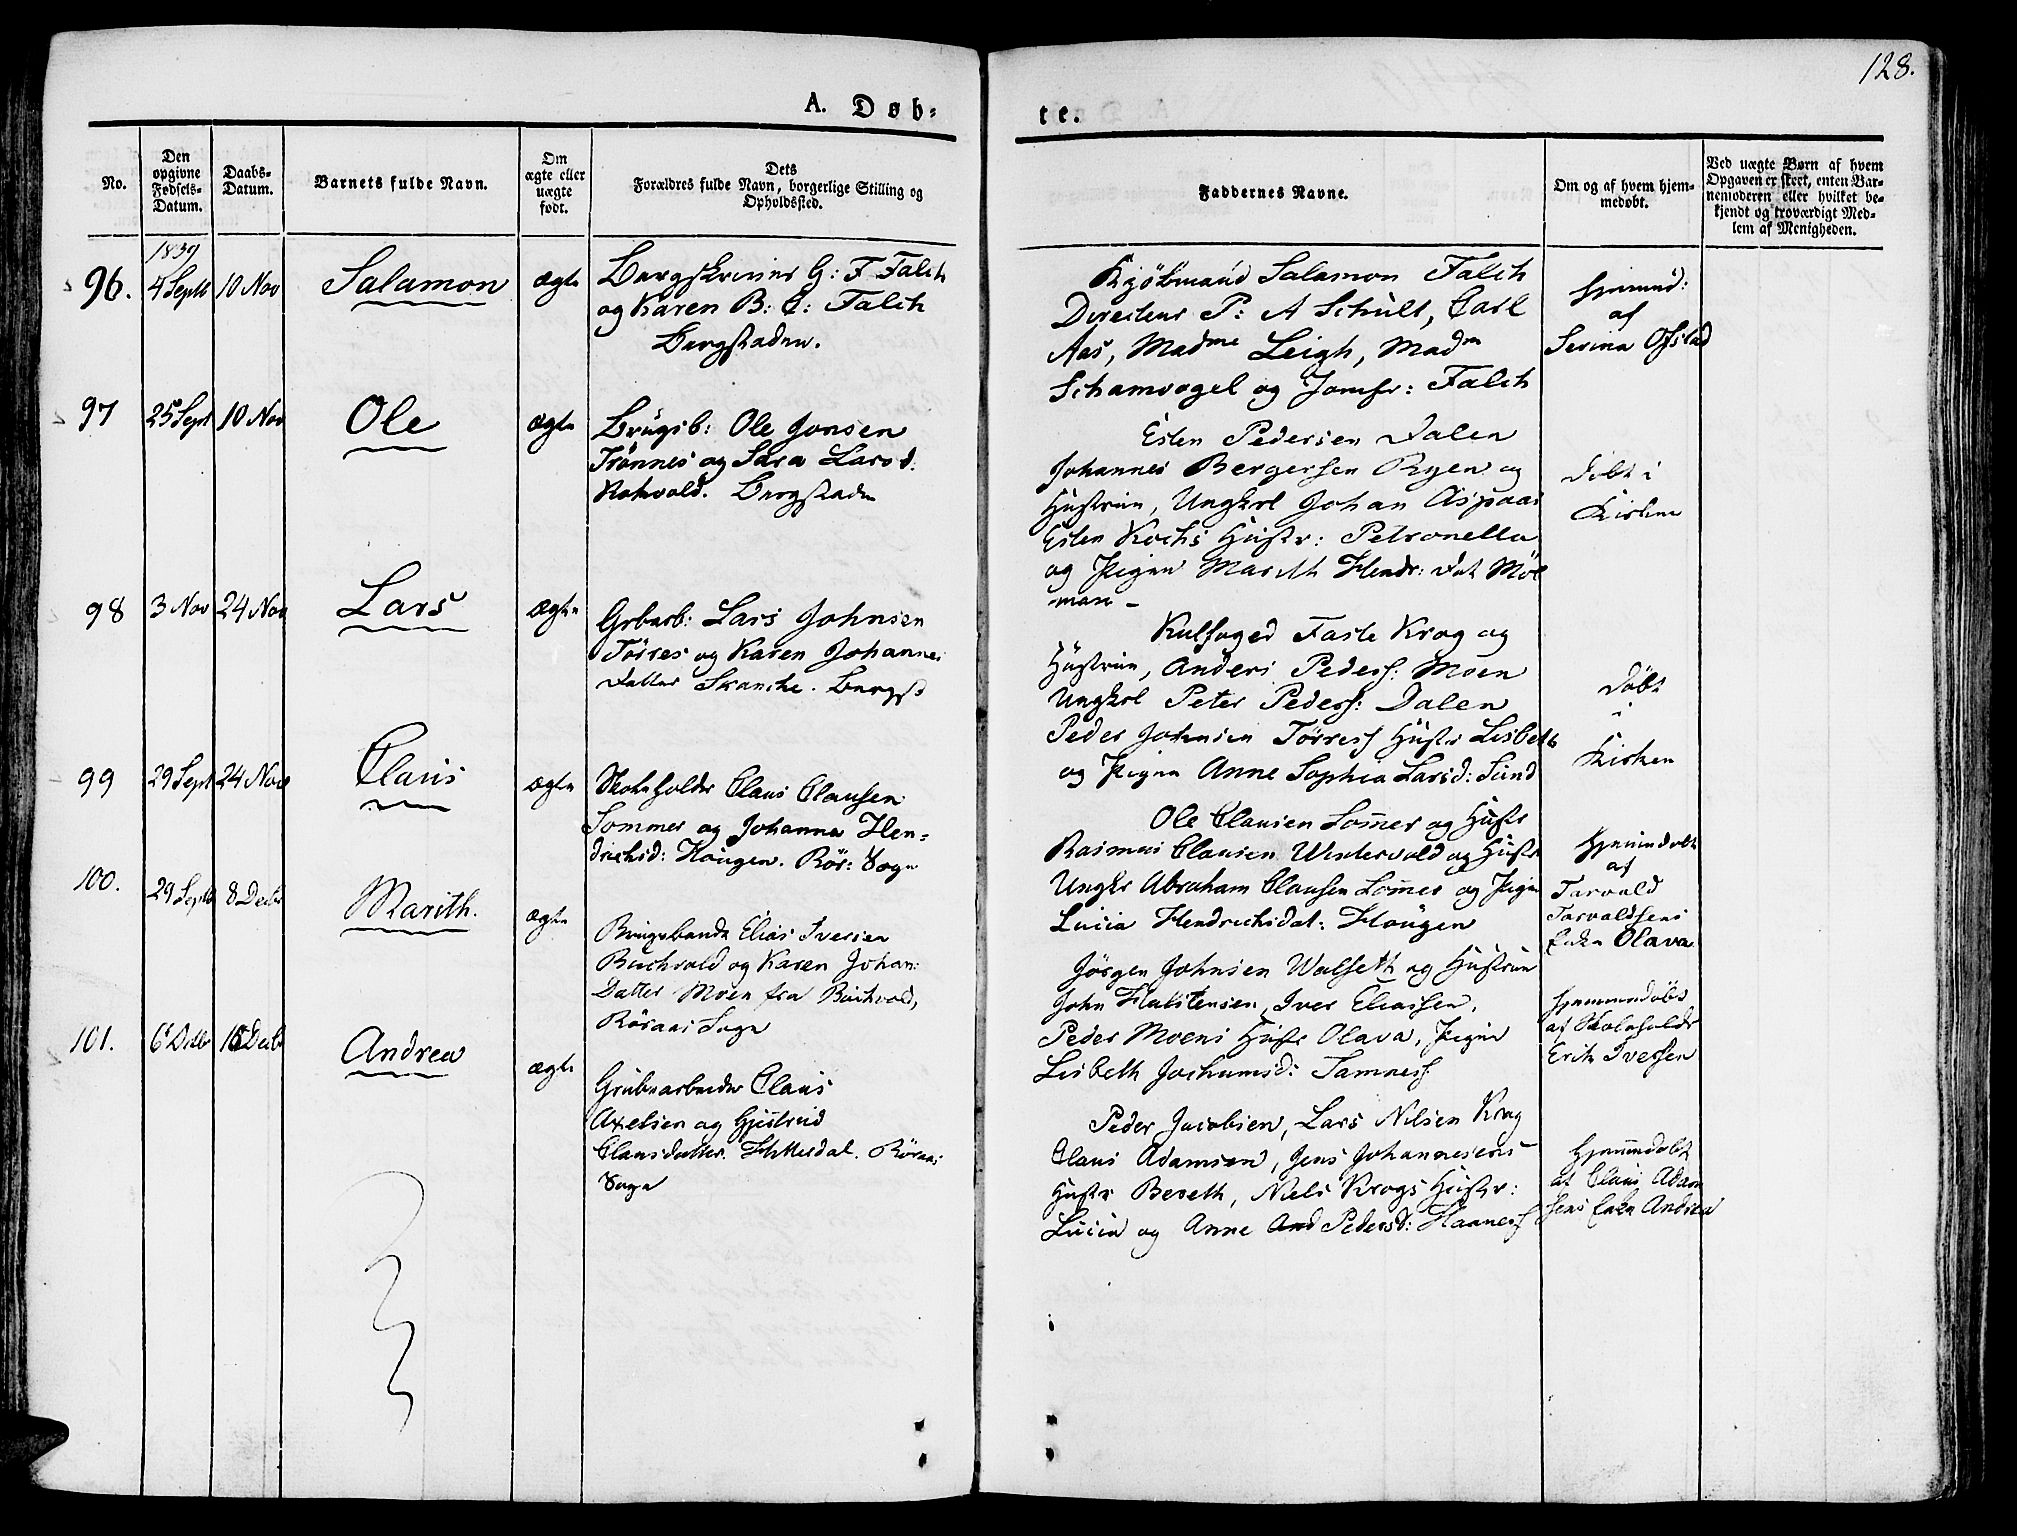 128.
A. Døb=
te.
No.
Den
opgivne
Fødsels-
Datum.
Daabs-
Datum.
Barnets fulde Navn.
Om
ægte eller
uægte
født.
Dets
Forældres fulde Navn, borgerlige Stilling og
Opholdssted.
Faddernes Navne.
Om og af hvem hjem-
medøbt.
Ved uægte Børn af hvem
Opgaven er skeet, enten Bar-
nemoderen eller hvilket be-
kjendt og troværdigt Med-
lem af Menigheden.
1839
96.
4 Septb
10 Nov
Salamon
ægte
Bergskriver G: F Falch
og Karen B: C: Falch
Bergstaden.
Kjöbmand Salamon Falch
Directeur P: A Schult, Carl
Aas, Madme Leigh, Madm
Schamvogel og Jomfr: Falch
Hjemmd:
af
Serina Ofstad
97
25 Sept
10 Nov
Ole
ægte
Brügsb: Ole Jonsen
Trönnes og Sara Larsd:
Rohvold. Bergstaden
Esten Pedersen Dalen
Johannes Bergersen Ryen og
Hustrue, Ungkrl Johan Aspaas
Esten Kochs Hustr: Petronella
og Pigen Marith Hendr: Dat Möl
mann
Döbt i
Kirken
98
3 Nov
24 Nov
Lars
ægte
Grbarb: Lars Johnsen
Törres og Karen Johannes
Datter Skanche. Bergst
Kulfoged Faste Krog og
Hustrue, Anders Peders: Moen
Ungkrl Peter Peders: Dalen
Peder Johnsen Törress Hustr Lisbeth
og Pigen Anne Sophia Larsd: Sund
Döbt
i
Kirken
99
29 Sept
24 Nov
Claus
ægte
Skoleholder Claus Clausen
Sommer og Johanna Hen=
drichsd: Hougen. Rör: Sogn
Ole Clausen Somer og Hustr
Rasmus Clausen Wintervold og Hustr
Ungkr Abraham Clausen Somer og Pigen
Lucia Hendrichsdat: Hougen
Hjemmedöbt
af
Tarvald
Tarvaldsens
Enke Olava
100.
29 Septb
8 Decbr
Marith.
ægte
Brugsbonde Elias Iversen
Buchvold og Karen Johan:
Datter Moen fra Buchvold,
Röraas Sogn
Jörgen Johnsen Walseth og Hustrue
John Halstensen, Iver Eliassen,
Peder Moens Hustr Olava, Pigen
Lisbeth Jochumsd: Tamness
Hjemmedöbt
af Skoleholdr
Erik Iversen
101.
6 Decbr
Decbr
Andrea
ægte
Grubearbeider Claus
Axelsen og Gjertrud
Clausdatter. Hitterdal. Röraas
Sogn
Peder Jacobsen, Lars Nilsen Krog
Claus Adamsen, Jens Johannesens
Hustr Bereth, Niels Krogs Hustr:
Lucia og Anne And Pedersd: Haaness
Hjemmedöbt
af Claus Adam
sens Enke Andrea